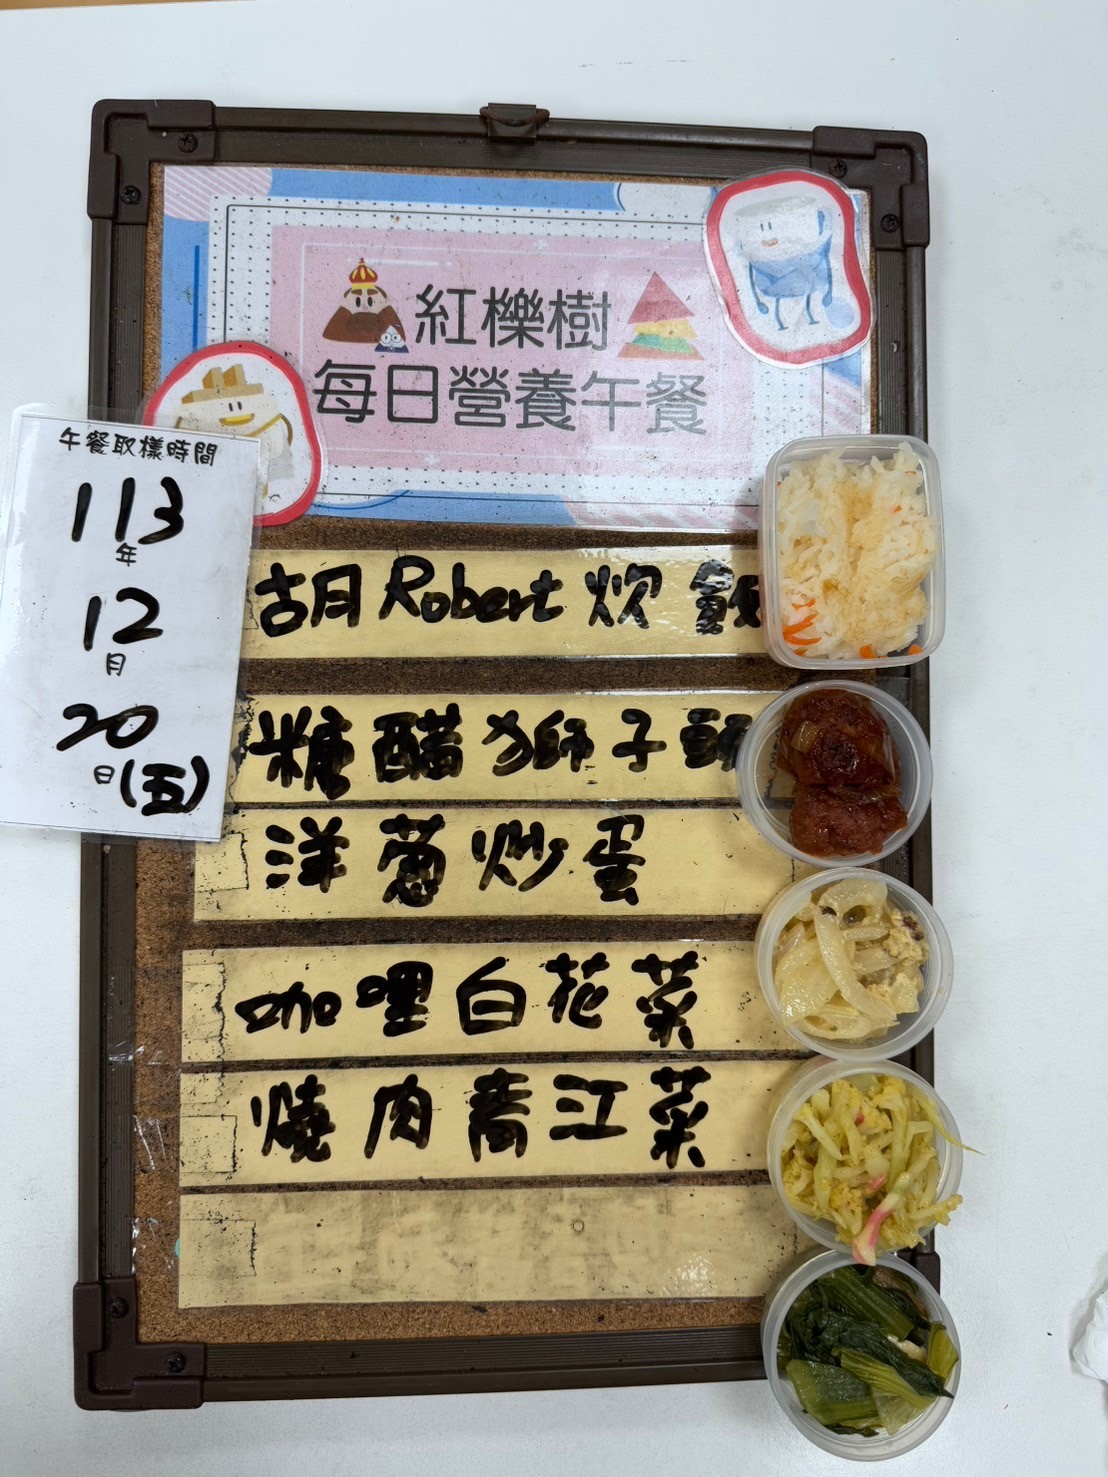 紅櫟樹
每日營養午餐
午餐取樣時間
113
年
12
月
20
日(五)
胡Robert炊飯
糖醋獅子頭
洋蔥炒蛋
咖哩白花菜
燒肉青江菜